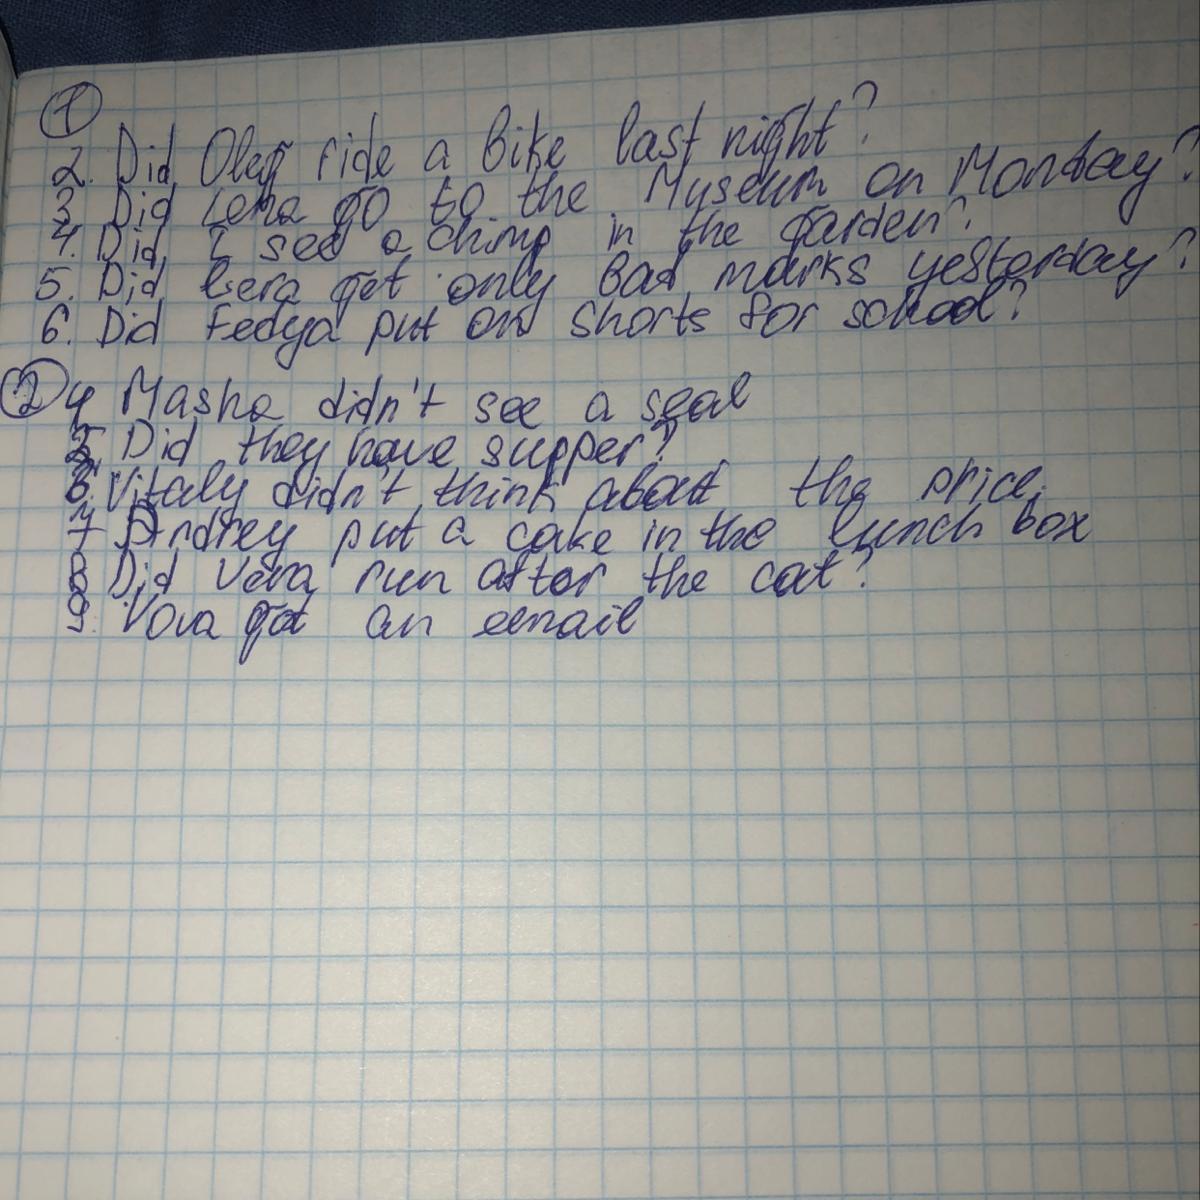 1
2. Did Oleg ride a bike last night?
3. Did Lena go to the Museum on Monday?
4. Did I see a chimp in the garden?
5. Did Lera get only bad marks yesterday?
6. Did Fedya put on shorts for school?
2 4 Masha didn't see a seal
5. Did they have supper?
6. Vitaly didn't think about the price.
7 Andrey put a cake in the lunch box
8 Did Vera run after the cat?
9. Vova got an email